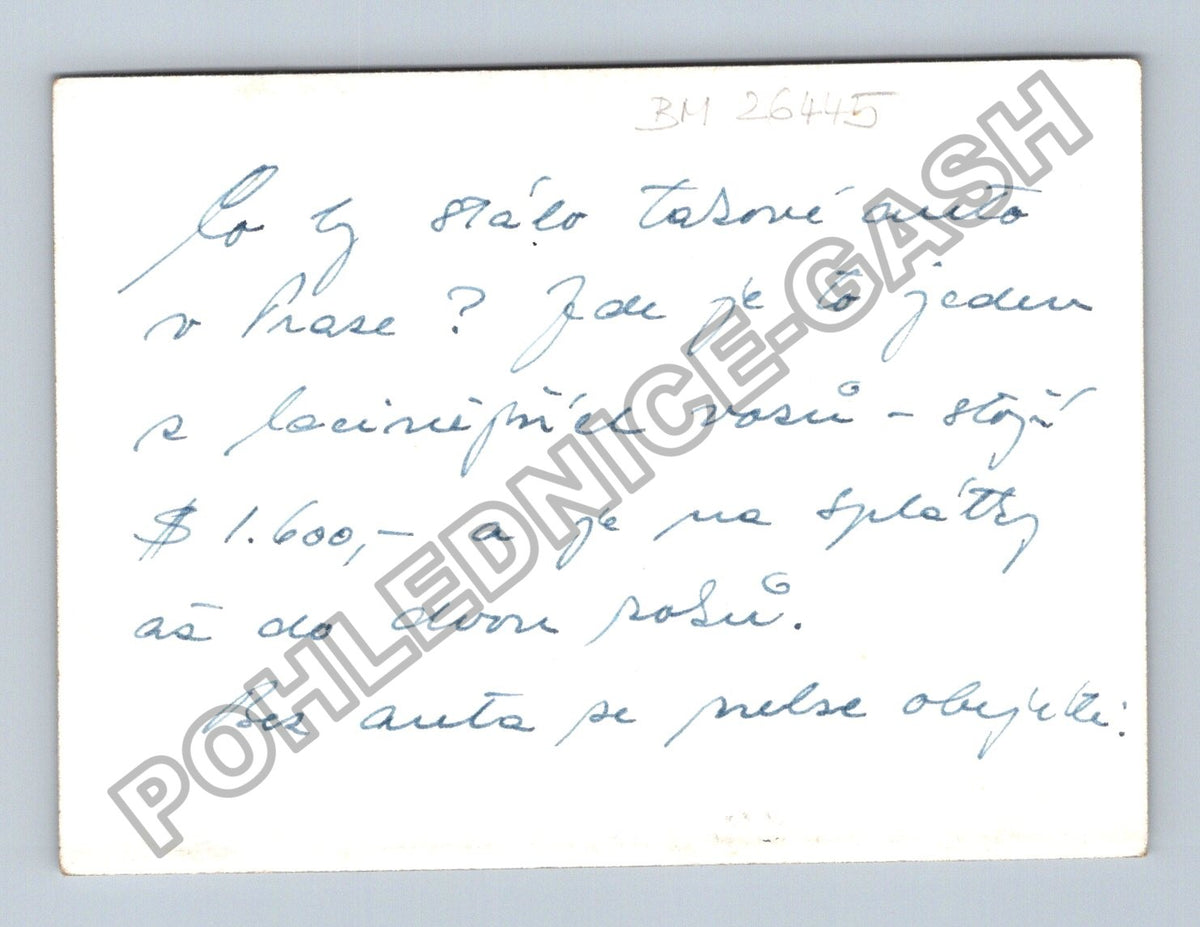 BM 26445
Co by stálo takové auto
v Praze? Zde je to jeden
z lacinějších vozů – stojí
$ 1.600,– a je na splátky
až do dvou roků.
Bez auta se nelze obejíti.
POHLEDNICE-GASH